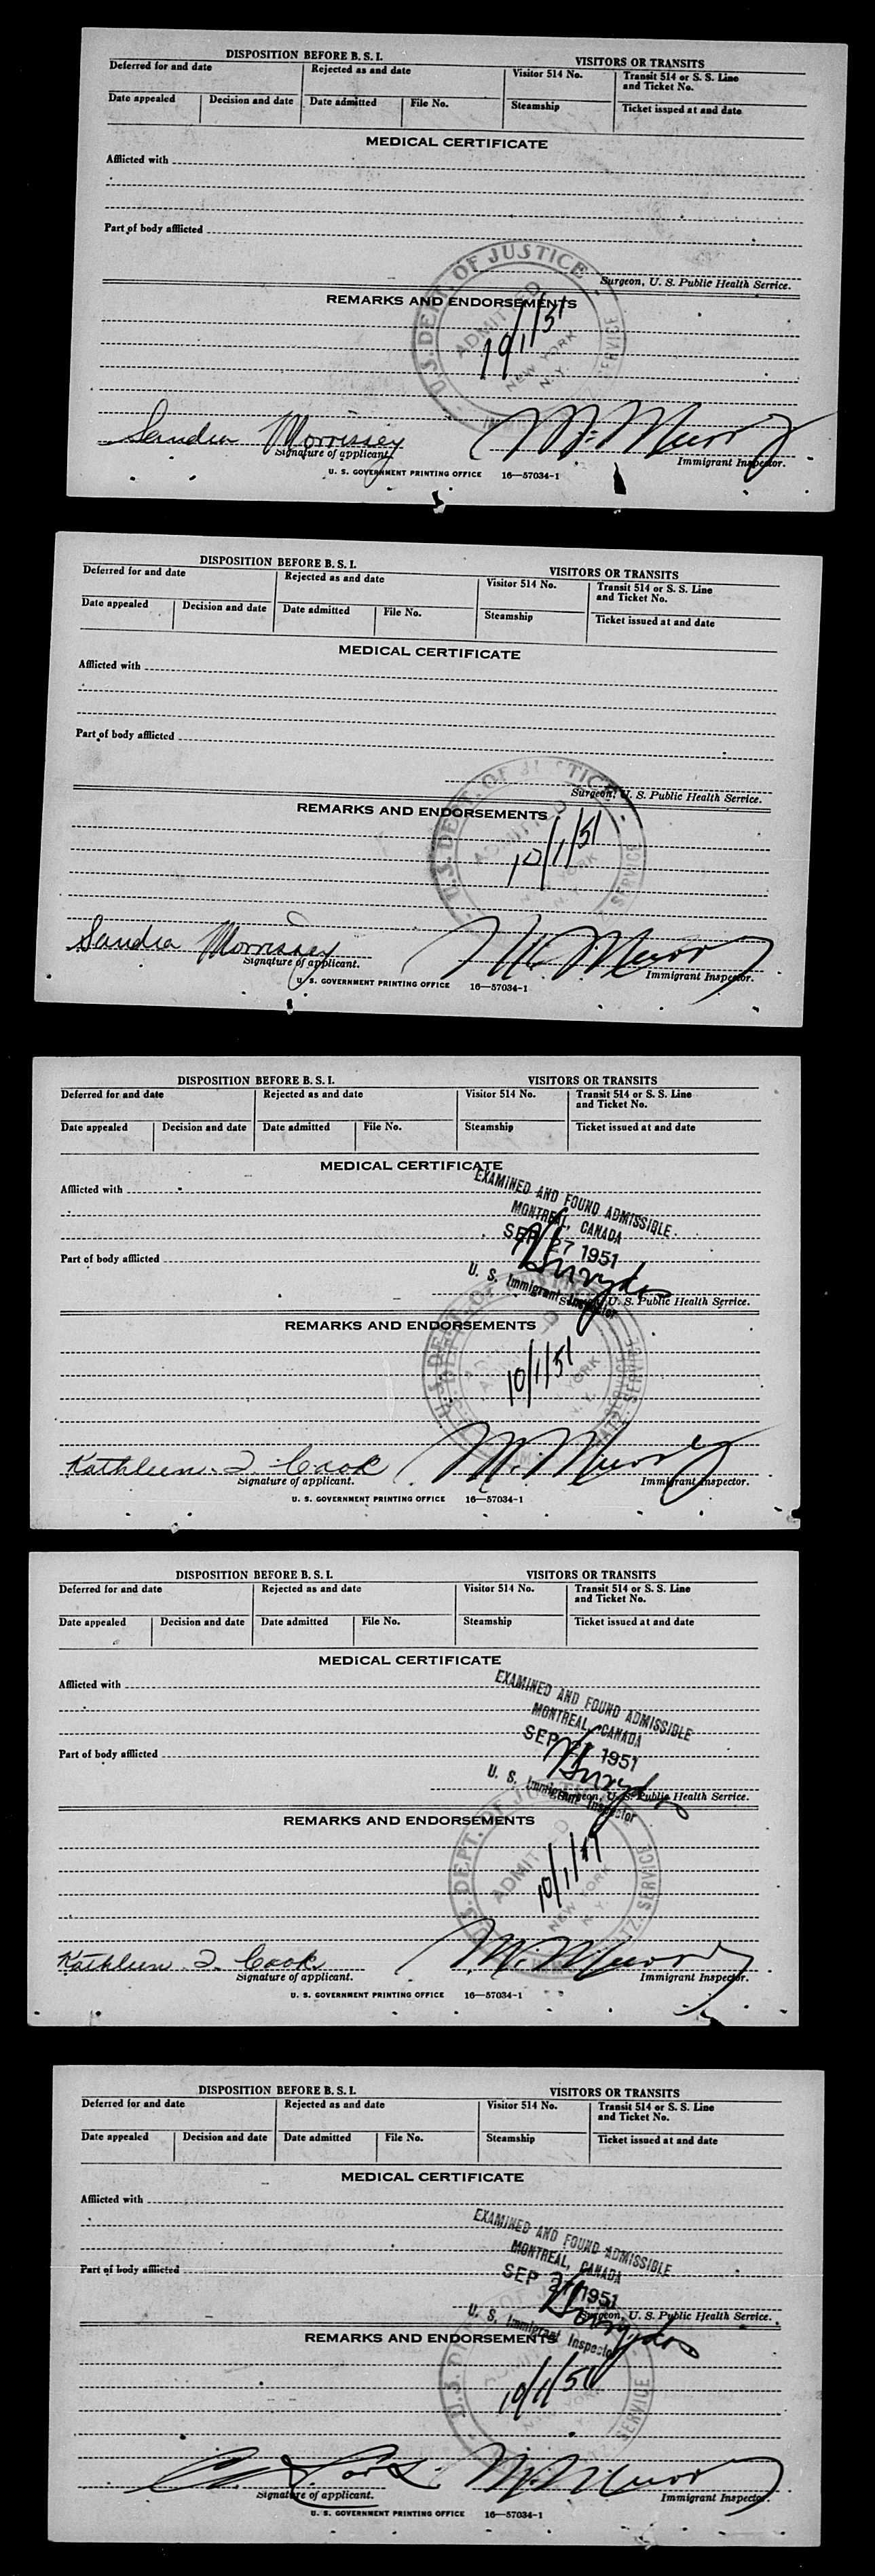 DISPOSITION BEFORE B. S. I. VISITORS OR TRANSITS
Deferred for and date Rejected as and date Visitor 514 No. Transit 514 or S. S. Line and Ticket No.
Date appealed Decision and date Date admitted File No. Steamship Ticket issued at and date
MEDICAL CERTIFICATE
Afflicted with
Part of body afflicted
Surgeon, U. S. Public Health Service.
REMARKS AND ENDORSEMENTS
U.S. DEPT. OF JUSTICE SERVICE
ADMITTED
NEW YORK
N.Y.
10/1/51
Sandra Morrissey
Signature of applicant. Immigrant Inspector.
U. S. GOVERNMENT PRINTING OFFICE 16—57034-1
DISPOSITION BEFORE B. S. I. VISITORS OR TRANSITS
Deferred for and date Rejected as and date Visitor 514 No. Transit 514 or S. S. Line and Ticket No.
Date appealed Decision and date Date admitted File No. Steamship Ticket issued at and date
MEDICAL CERTIFICATE
Afflicted with
Part of body afflicted
Surgeon, U. S. Public Health Service.
REMARKS AND ENDORSEMENTS
U.S. DEPT. OF JUSTICE SERVICE
10/1/51
Sandra Morrissey
Signature of applicant. Immigrant Inspector.
U. S. GOVERNMENT PRINTING OFFICE 16—57034-1
DISPOSITION BEFORE B. S. I. VISITORS OR TRANSITS
Deferred for and date Rejected as and date Visitor 514 No. Transit 514 or S. S. Line and Ticket No.
Date appealed Decision and date Date admitted File No. Steamship Ticket issued at and date
MEDICAL CERTIFICATE
EXAMINED AND FOUND ADMISSIBLE
MONTREAL, CANADA
SEP 27 1951
U. S. Immigrant Inspector
Afflicted with
Part of body afflicted
U. S. Public Health Service.
REMARKS AND ENDORSEMENTS
10/1/51
Kathleen I. Cook
Signature of applicant. Immigrant Inspector.
U. S. GOVERNMENT PRINTING OFFICE 16—57034-1
DISPOSITION BEFORE B. S. I. VISITORS OR TRANSITS
Deferred for and date Rejected as and date Visitor 514 No. Transit 514 or S. S. Line and Ticket No.
Date appealed Decision and date Date admitted File No. Steamship Ticket issued at and date
MEDICAL CERTIFICATE
EXAMINED AND FOUND ADMISSIBLE
MONTREAL, CANADA
SEP 1951
U. S. Immigrant Inspector
Afflicted with
Part of body afflicted
Surgeon, U. S. Public Health Service.
REMARKS AND ENDORSEMENTS
U.S. DEPT. OF SERVICE
ADMITTED
NEW YORK
N.Y.
10/1/51
Kathleen I. Cook
Signature of applicant. Immigrant Inspector.
U. S. GOVERNMENT PRINTING OFFICE 16—57034-1
DISPOSITION BEFORE B. S. I. VISITORS OR TRANSITS
Deferred for and date Rejected as and date Visitor 514 No. Transit 514 or S. S. Line and Ticket No.
Date appealed Decision and date Date admitted File No. Steamship Ticket issued at and date
MEDICAL CERTIFICATE
EXAMINED AND FOUND ADMISSIBLE
MONTREAL, CANADA
SEP 27 1951
U. S. Immigrant Inspector
Afflicted with
Part of body afflicted
Surgeon, U. S. Public Health Service.
REMARKS AND ENDORSEMENTS
10/1/51
Signature of applicant. Immigrant Inspector.
U. S. GOVERNMENT PRINTING OFFICE 16—57034-1